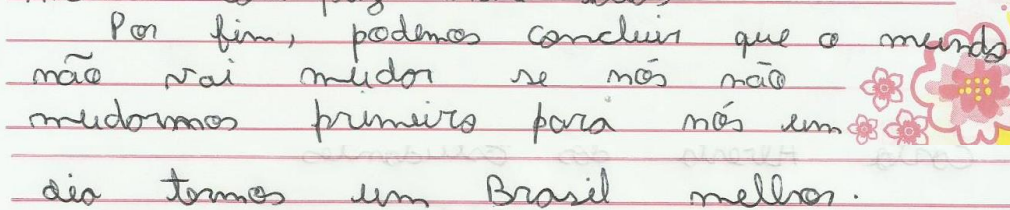 Por fim, podemos concluir que o mundo
não vai mudar se nós não
mudarmos primeiro para nós um
dia termos um Brasil melhor.